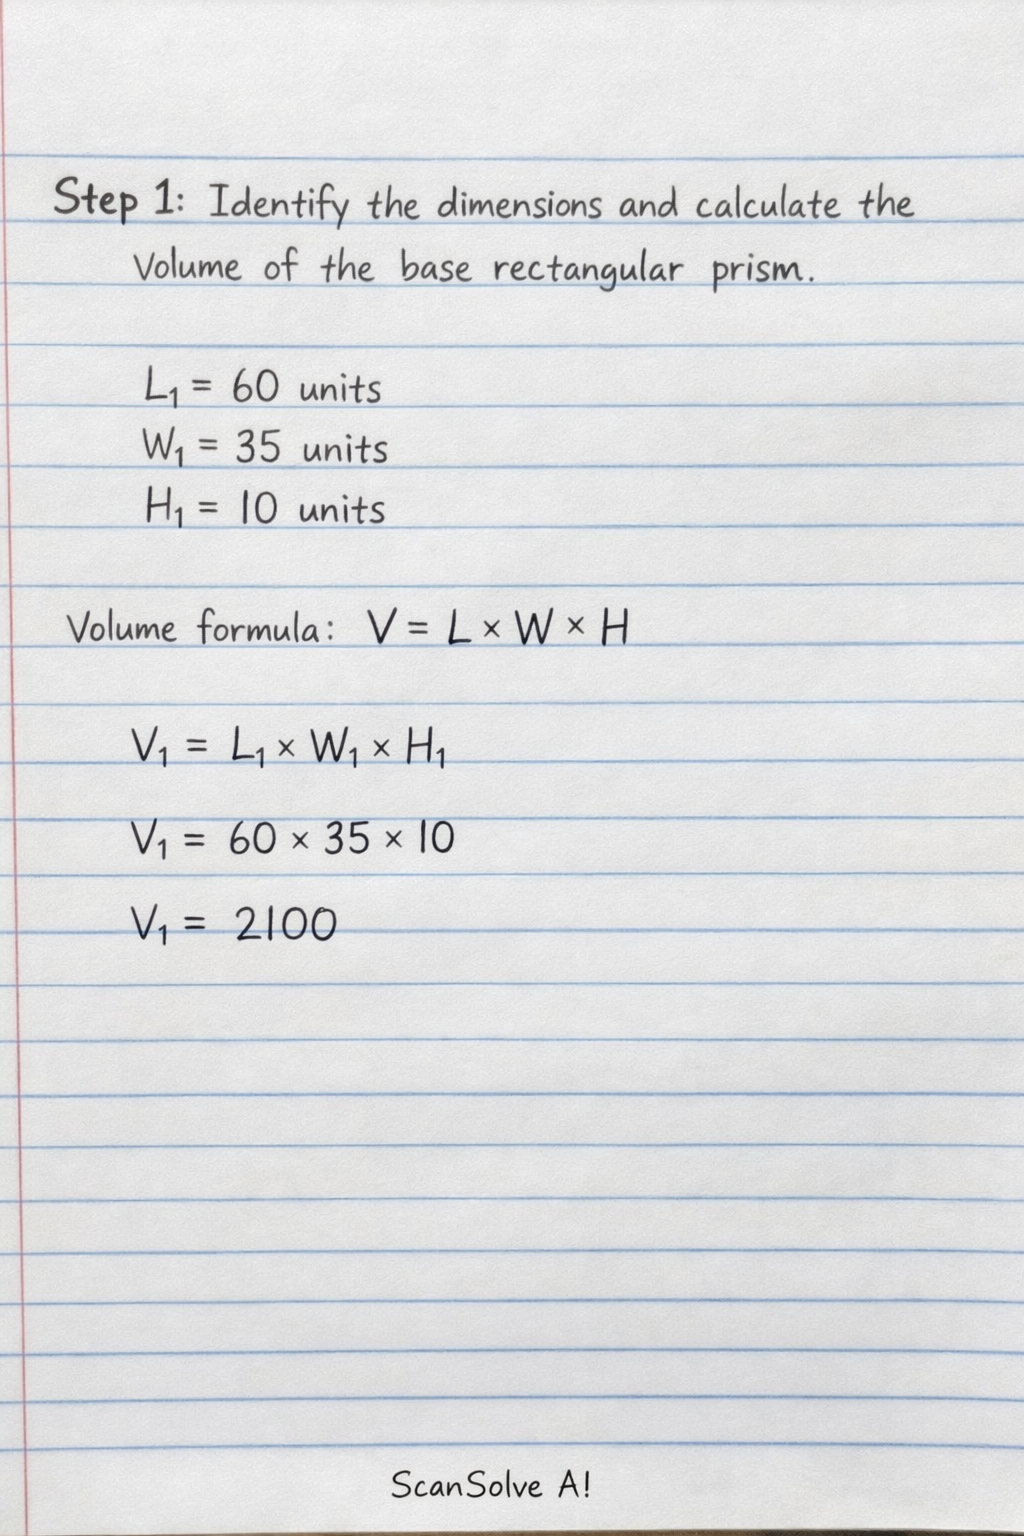 Step 1: Identify the dimensions and calculate the
Volume of the base rectangular prism.
L₁ = 60 units
W₁ = 35 units
H₁ = 10 units
Volume formula: V = L × W × H
V₁ = L₁ × W₁ × H₁
V₁ = 60 × 35 × 10
V₁ = 2100
ScanSolve A!